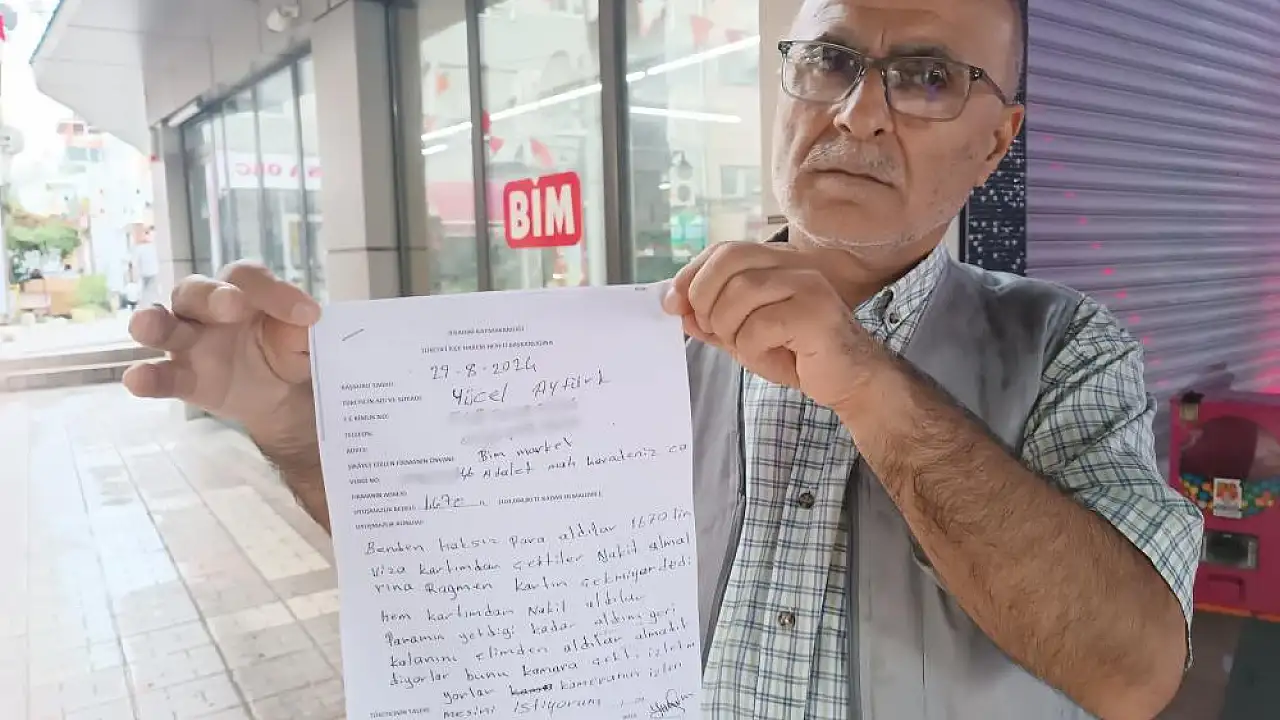 BİM
TÜKETİCİ İLÇE HAKEM HEYETİ BAŞKANLIĞINA
BAŞVURU TARİHİ 29-8-2024
TÜKETİCİNİN ADI VE SOYADI: Yücel Aytürk
T.C KİMLİK NO:
TELEFON:
ADRES:
ŞİKAYET EDİLEN FİRMANIN ÜNVANI: Bim market
VERGİ NO:
FİRMANIN ADRESİ: Adalet mah karadeniz ca
UYUŞMAZLIK BEDELİ: 1670
UYUŞMAZLIK KONUSU:
Benden haksız Para aldılar 1670 lir
Viza kartımdan çektiler Nakit almal
rına Rağmen kartın çekmiyor dedi
hem kartımdan Nakit aldılar
Paramın yettiği kadar aldım geri
kalanını elimden aldılar almadık
diyorlar bunu kamara çekti izletm
yorlar kameranın izlen
mesini istiyorum
TÜKETİCİNİN TALEBİ